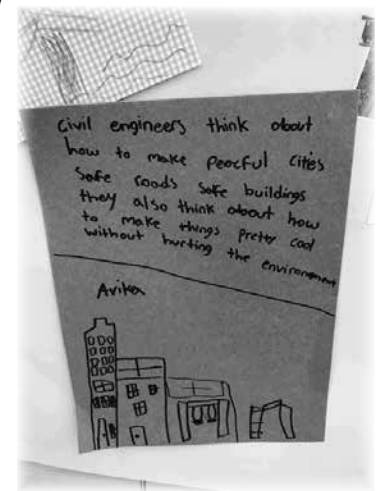 civil engineers think about
how to make peacful cities
safe roads safe buildings
they also think about how
to make things pretty cool
without hurting the environment
Aviten